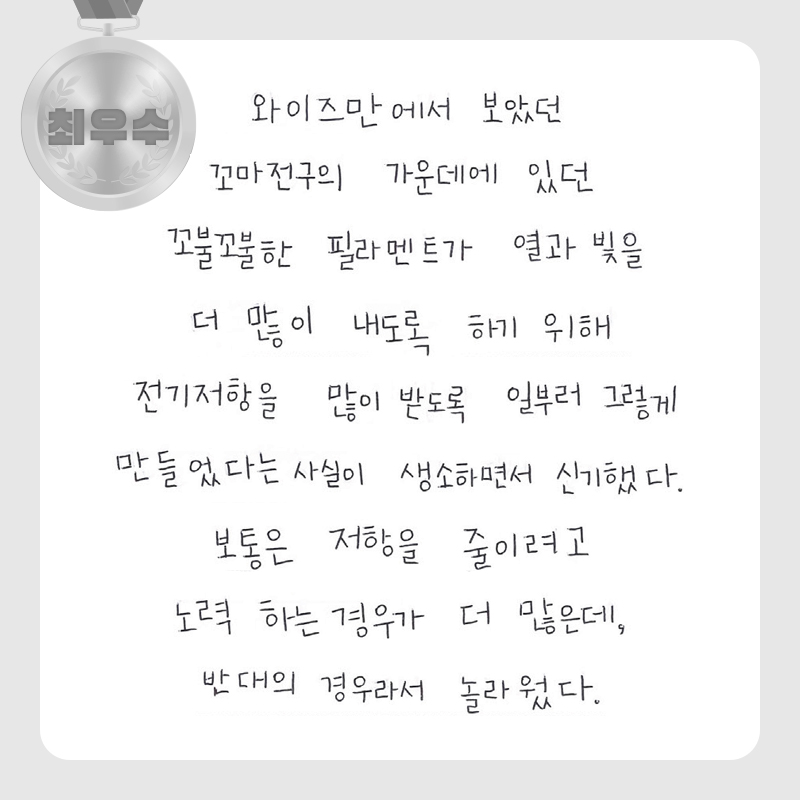 최우수
와이즈만에서 보았던
꼬마전구의 가운데에 있던
꼬불꼬불한 필라멘트가 열과 빛을
더 많이 내도록 하기 위해
전기저항을 많이 받도록 일부러 그렇게
만들었다는 사실이 생소하면서 신기했다.
보통은 저항을 줄이려고
노력 하는 경우가 더 많은데,
반대의 경우라서 놀라웠다.